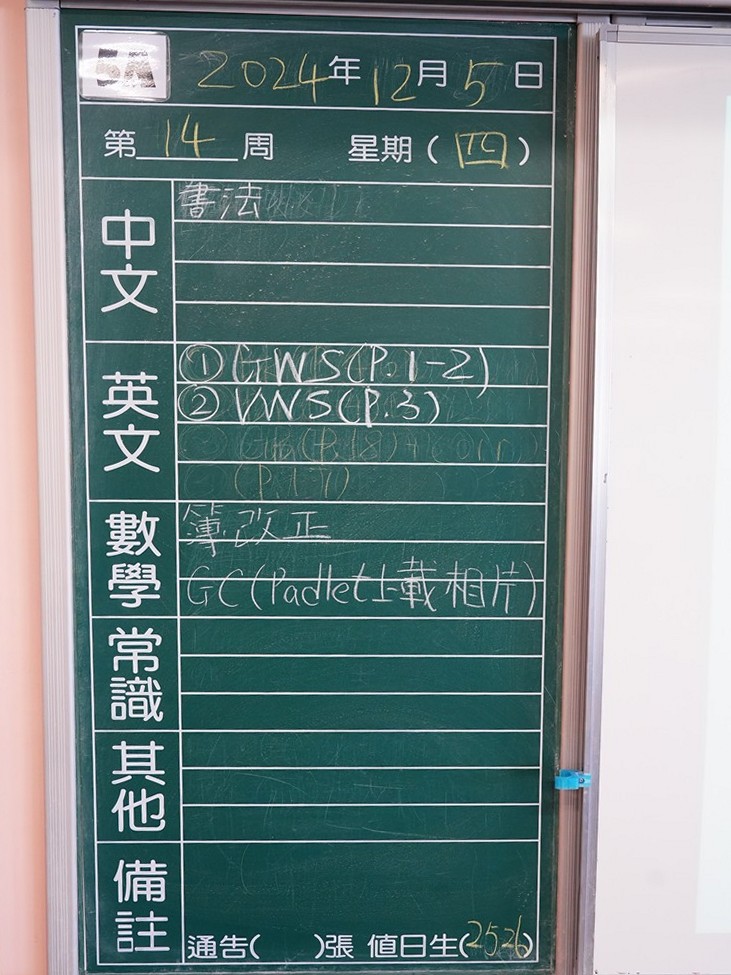 5A 2024年12月5日
第14周 星期(四)
中文
書法
英文
① GWS(P.1-2)
② VWS(P.3)
數學
簿改正
GC(Padlet上載相片)
常識
其他
備註
通告( )張 值日生(2526)